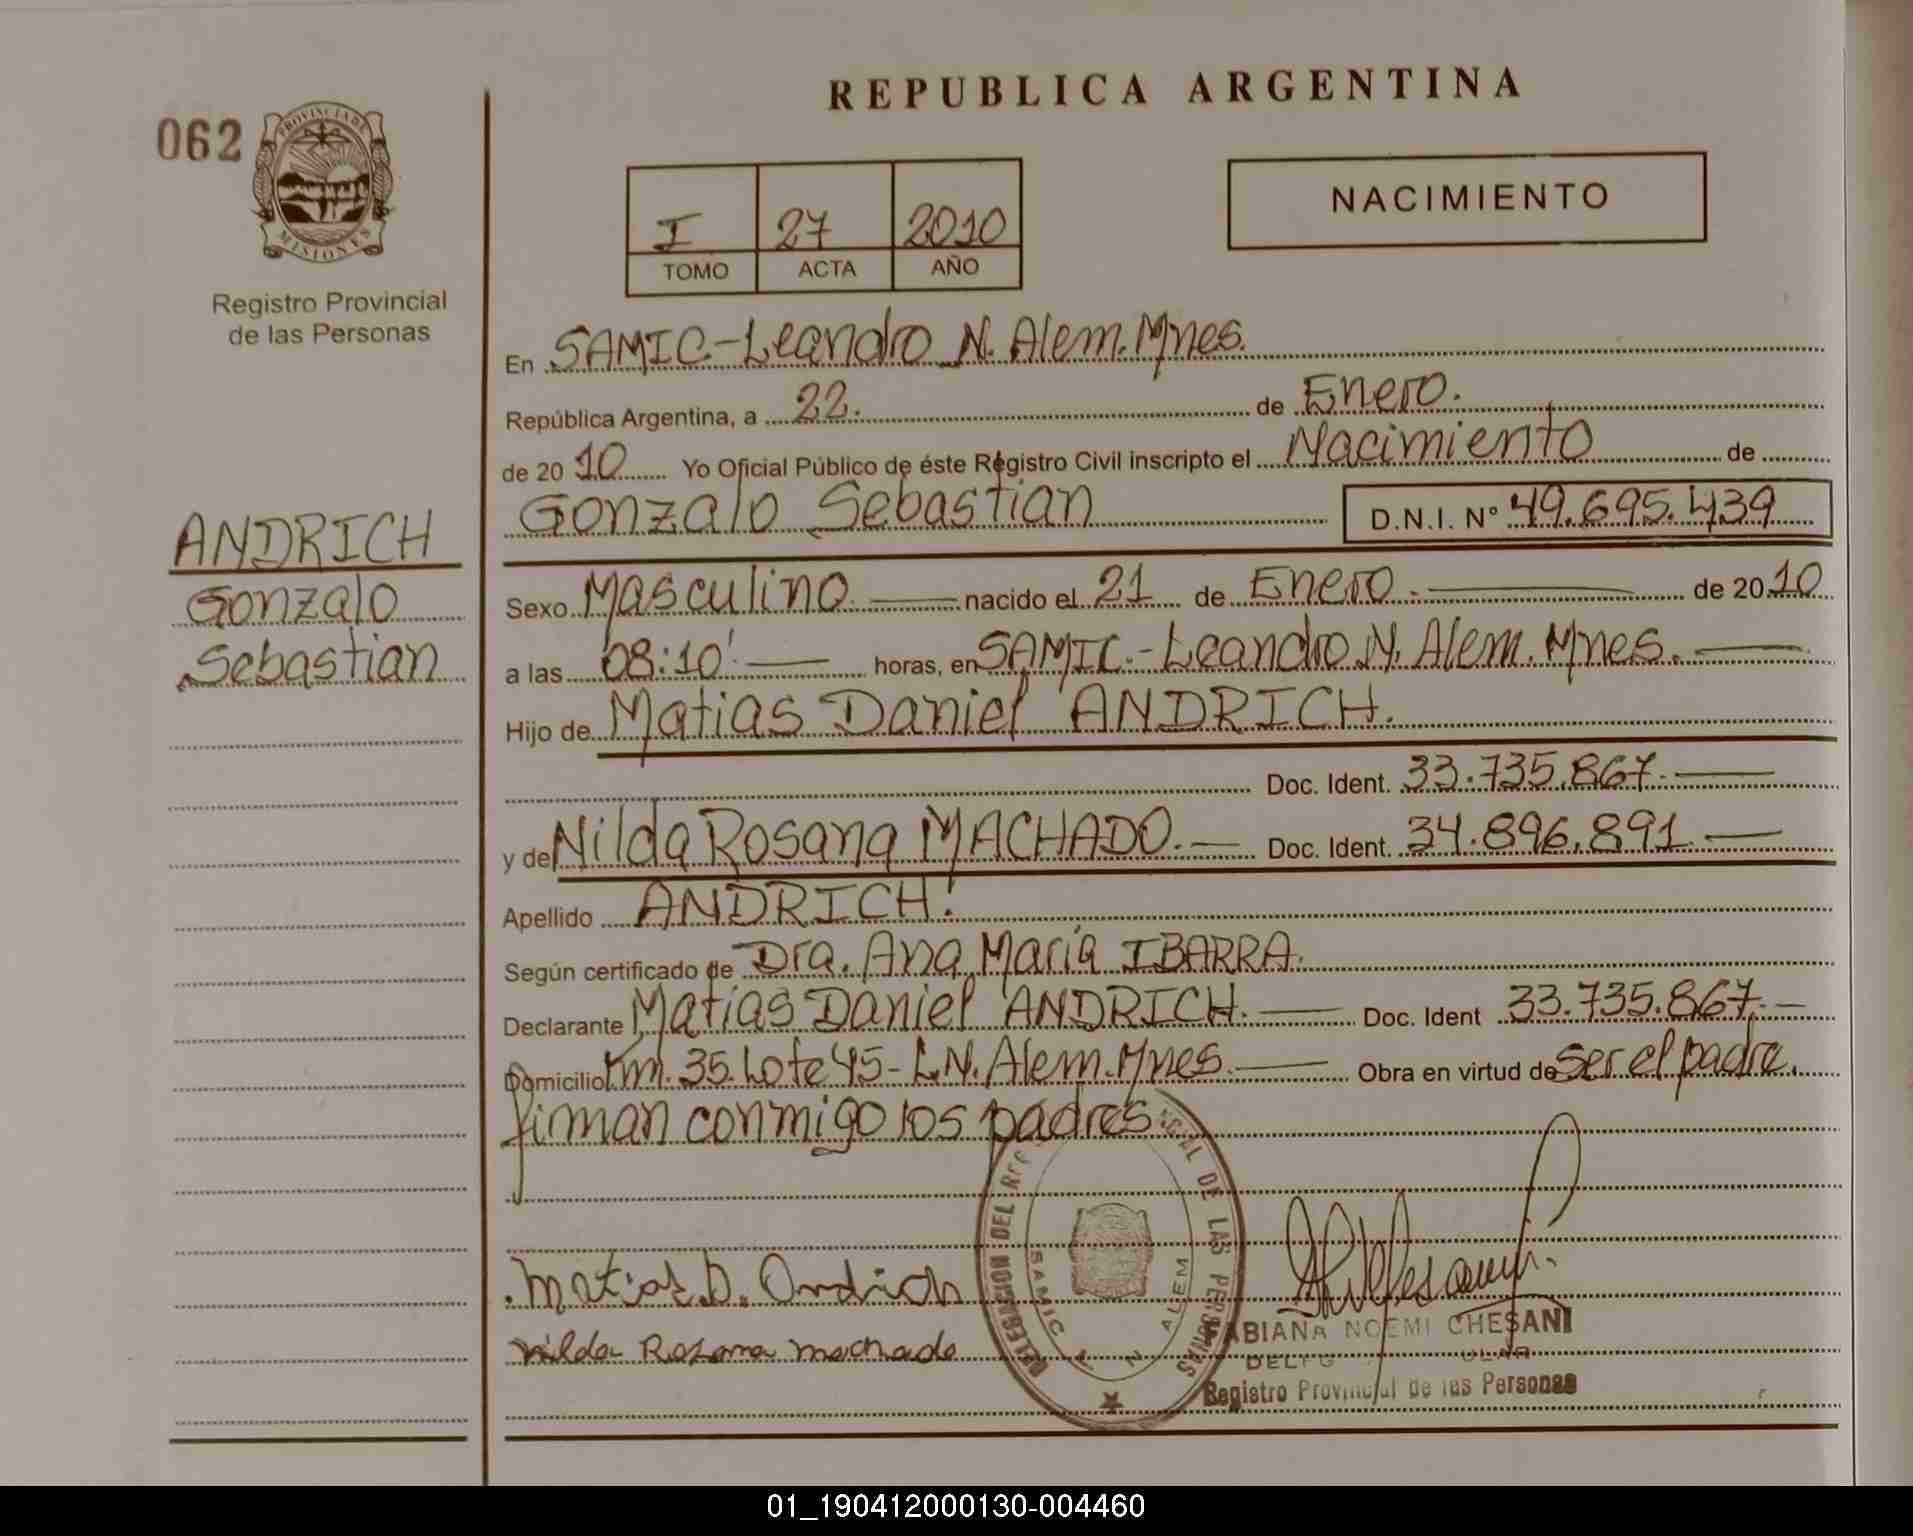 REPUBLICA ARGENTINA
062
PROVINCIA DE
MISIONES
Registro Provincial
de las Personas
I 27 2010
TOMO ACTA AÑO
NACIMIENTO
En SAMIC-Leandro N. Alem.Mnes.
República Argentina, a 22. de Enero.
de 20 10 Yo Oficial Público de éste Registro Civil inscripto el Nacimiento de
Gonzalo Sebastian D.N.I. N° 49.695.439
ANDRICH
Gonzalo
Sebastian
Sexo Masculino. nacido el 21 de Enero. de 20 10
a las 08:10' horas, en SAMIC.-Leandro N. Alem. Mnes.
Hijo de Matias Daniel ANDRICH.
Doc. Ident. 33.735.867.
y de Nilda Rosana MACHADO. Doc. Ident. 34.896.891
Apellido ANDRICH.
Según certificado de Dra. Ana María IBARRA.
Declarante Matias Daniel ANDRICH. Doc. Ident 33.735.867.
Domicilio Km. 35. Lote 45- L.N. Alem.Mnes. Obra en virtud de ser el padre.
firman conmigo los padres
Matias D. Andrich
Nilda Rosana machado
DELEGACION DEL REG NCIAL DE LAS PERSONAS
SAMIC L. N. ALEM
FABIANA NOEMI CHESANI
Registro Provincial de las Personas
01_190412000130-004460